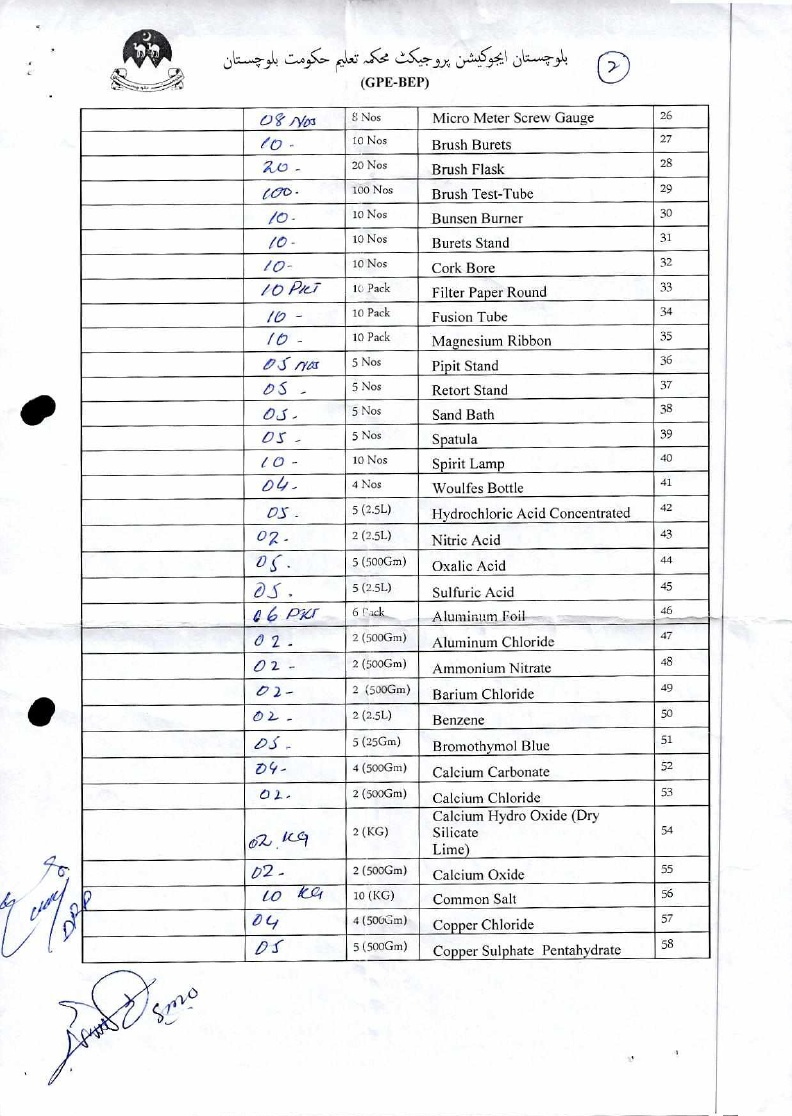 بلوچستان ایجوکیشن پروجیکٹ محکمہ تعلیم حکومت بلوچستان
(GPE-BEP)
2
08 Nos 8 Nos Micro Meter Screw Gauge 26
10 - 10 Nos Brush Burets 27
20 - 20 Nos Brush Flask 28
100 - 100 Nos Brush Test-Tube 29
10 - 10 Nos Bunsen Burner 30
10 - 10 Nos Burets Stand 31
10 - 10 Nos Cork Bore 32
10 PKT 10 Pack Filter Paper Round 33
10 - 10 Pack Fusion Tube 34
10 - 10 Pack Magnesium Ribbon 35
05 Nos 5 Nos Pipit Stand 36
05 - 5 Nos Retort Stand 37
05 - 5 Nos Sand Bath 38
05 - 5 Nos Spatula 39
10 - 10 Nos Spirit Lamp 40
04 - 4 Nos Woulfes Bottle 41
05 - 5 (2.5L) Hydrochloric Acid Concentrated 42
02 - 2 (2.5L) Nitric Acid 43
05 - 5 (500Gm) Oxalic Acid 44
05 - 5 (2.5L) Sulfuric Acid 45
06 PKT 6 Pack Aluminum Foil 46
02 - 2 (500Gm) Aluminum Chloride 47
02 - 2 (500Gm) Ammonium Nitrate 48
02 - 2 (500Gm) Barium Chloride 49
02 - 2 (2.5L) Benzene 50
05 - 5 (25Gm) Bromothymol Blue 51
04 - 4 (500Gm) Calcium Carbonate 52
02 - 2 (500Gm) Calcium Chloride 53
02. KG 2 (KG) Calcium Hydro Oxide (Dry
Silicate
Lime) 54
02 - 2 (500Gm) Calcium Oxide 55
10 KG 10 (KG) Common Salt 56
04 4 (500Gm) Copper Chloride 57
05 5 (500Gm) Copper Sulphate Pentahydrate 58
DRP
SMO